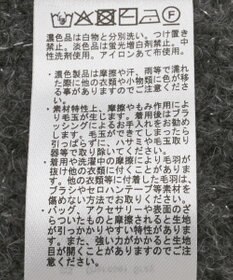 濃色品は白物と分別洗い。つけ置き
禁止。淡色品は蛍光増白剤禁止。中
性洗剤使用。アイロンあて布使用。
・濃色製品は摩擦や汗、雨等で濡れ
た際に他の衣類や小物類に色が移る
事がありますのでご注意ください。
・素材特性上、摩擦やもみ作用によ
り毛玉が生じます。着用後はブラ
ッシングによるお手入れをお勧め
します。毛玉ができてしまったら
引っぱらずに、ハサミや毛玉取り
器等で取り除いてください。
・着用や洗濯中の摩擦により毛羽が
抜け他の衣類等に付着することが
あります。他の衣類に付いた毛羽は、
ブラシやセロハンテープ等素材を
傷めない方法でお取りください。
・バッグ、アクセサリーや表面のざ
らついたものと摩擦されると生地
が引っかかりやすい特性がありま
す。また、強い力がかかると生地
目が開くことがありますのでご注
意ください。